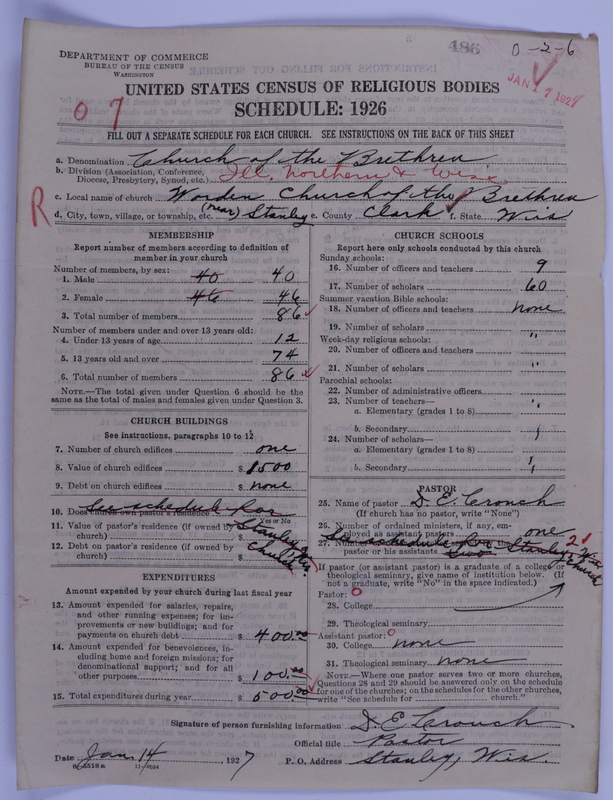 486
0-2-6
DEPARTMENT OF COMMERCE
BUREAU OF THE CENSUS
WASHINGTON
JAN 17 1927
UNITED STATES CENSUS OF RELIGIOUS BODIES
SCHEDULE: 1926
0 7
FILL OUT A SEPARATE SCHEDULE FOR EACH CHURCH. SEE INSTRUCTIONS ON THE BACK OF THIS SHEET
a. Denomination Church of the Brethren
b. Division (Association, Conference, Diocese, Presbytery, Synod, etc.) Ill. Northern & Wis.
c. Local name of church Worden Church of the Brethren
R
d. City, town, village, or township, etc. (near) Stanley e. County Clark f. State Wis
MEMBERSHIP
Report number of members according to definition of member in your church
Number of members, by sex:
1. Male 40 40
2. Female 46 46
3. Total number of members 86
Number of members under and over 13 years old:
4. Under 13 years of age 12
5. 13 years old and over 74
6. Total number of members 86
NOTE.—The total given under Question 6 should be the same as the total of males and females given under Question 3.
CHURCH BUILDINGS
See instructions, paragraphs 10 to 12
7. Number of church edifices one
8. Value of church edifices $1500
9. Debt on church edifices $ none
10. Does church own pastor's residence
Yes or No
See schedule for
11. Value of pastor's residence (if owned by church) $
Stanley, Wis.
12. Debt on pastor's residence (if owned by church) $
Church
EXPENDITURES
Amount expended by your church during last fiscal year
13. Amount expended for salaries, repairs, and other running expenses; for improvements or new buildings; and for payments on church debt $ 400.00
14. Amount expended for benevolences, including home and foreign missions; for denominational support; and for all other purposes $ 100.00
15. Total expenditures during year $ 500.00
CHURCH SCHOOLS
Report here only schools conducted by this church
Sunday schools:
16. Number of officers and teachers 9
17. Number of scholars 60
Summer vacation Bible schools:
18. Number of officers and teachers none
19. Number of scholars "
Week-day religious schools:
20. Number of officers and teachers
21. Number of scholars "
Parochial schools:
22. Number of administrative officers
23. Number of teachers—
a. Elementary (grades 1 to 8) "
b. Secondary
24. Number of scholars—
a. Elementary (grades 1 to 8)
b. Secondary
PASTOR
25. Name of pastor S. E. Crouch
(If church has no pastor, write "None")
26. Number of ordained ministers, if any, employed as assistant pastors one
27. Number
pastor or his assistants two
2
See schedule for Stanley, Wis. Church
If pastor (or assistant pastor) is a graduate of a college or theological seminary, give name of institution below. (If not a graduate, write "No" in the space indicated.)
Pastor: 0
28. College
29. Theological seminary
Assistant pastor: 0
30. College none
31. Theological seminary none
NOTE.—Where one pastor serves two or more churches, Questions 28 and 29 should be answered only on the schedule for one of the churches; on the schedules for the other churches, write "See schedule for ______ church."
Signature of person furnishing information S. E. Crouch
Official title Pastor
Date Jan. 14, 1927
P. O. Address Stanley, Wis